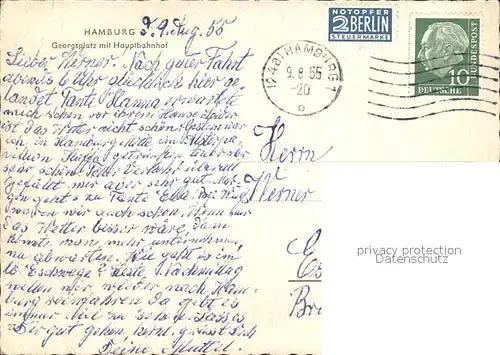 HAMBURG d. 9. Aug. 55
Georgsplatz mit Hauptbahnhof
NOTOPFER
2 BERLIN
STEUERMARKE
(24a) HAMBURG 1
9.8.55
-20
DEUTSCHE
BUNDESPOST
10
Lieber Werner. Nach guter Fahrt
abends 6 Uhr glücklich hier ge
landet. Tante Hanna erwartete
mich schon vor ihrem Hause. Leider
ist das Wetter nicht schön. Gestern war
ich in Hamburg Mitte im Alsterpa-
villon Kaffee getrunken, teuer aber
sehr schön. Der Verkehr überall
gefällt mir aber sehr gut. Mor
gen geht's zu Tante Ella.
waren wir auch schon. Wenn nur
das Wetter besser wäre, dann
könnte man mehr unternehmen,
na abwarten. Wie geht es in
Eschwege? Heute Nachmittag
wollen wir wieder nach Ham-
burg reinfahren. Da gibt es
immer viel zu sehen. Lass es
Dir gut gehen, herzl. grüsst Dich
Deine Mutti.
Herrn
Werner
privacy protection
Datenschutz
Es
Br